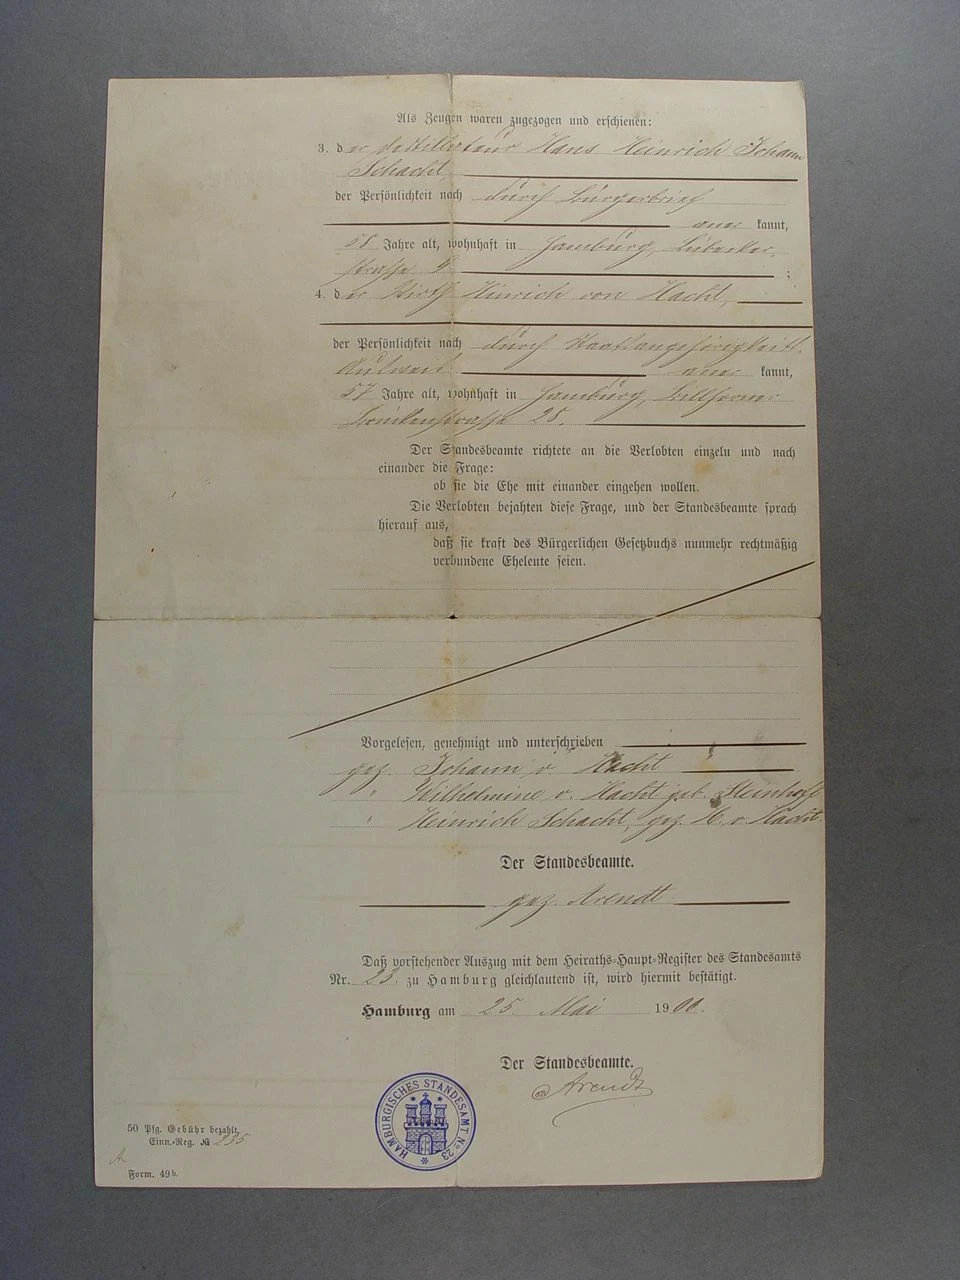 Als Zeugen waren zugezogen und erschienen:
3. der Destillateur Hans Heinrich Johann
Schacht,
der Persönlichkeit nach durch Bürgerbrief
aner kannt,
58 Jahre alt, wohnhaft in Hamburg, Lübecker-
strasse 9 ;
4. der Wirth Hinrich von Hacht,
der Persönlichkeit nach durch Staatsangehörigkeits-
Ausweis aner kannt,
57 Jahre alt, wohnhaft in Hamburg, Billhorner
Brückenstrasse 28.
Der Standesbeamte richtete an die Verlobten einzeln und nach
einander die Frage:
ob sie die Ehe mit einander eingehen wollen.
Die Verlobten bejahten diese Frage, und der Standesbeamte sprach
hierauf aus,
daß sie kraft des Bürgerlichen Gesetzbuchs nunmehr rechtmäßig
verbundene Eheleute seien.
Vorgelesen, genehmigt und unterschrieben
gez. Johann v. Hacht
" Wilhelmine v. Hacht geb. Steinhoff
" Heinrich Schacht, gez. H. v. Hacht.
Der Standesbeamte.
gez. Arendt.
Daß vorstehender Auszug mit dem Heiraths-Haupt-Register des Standesamts
Nr. 23. zu Hamburg gleichlautend ist, wird hiermit bestätigt.
Hamburg am 25. Mai 1900.
Der Standesbeamte.
Arendt
HAMBURGISCHES STANDESAMT No. 23
50 Pfg. Gebühr bezahlt,
Einn.-Reg. № 235
Form. 49 b.